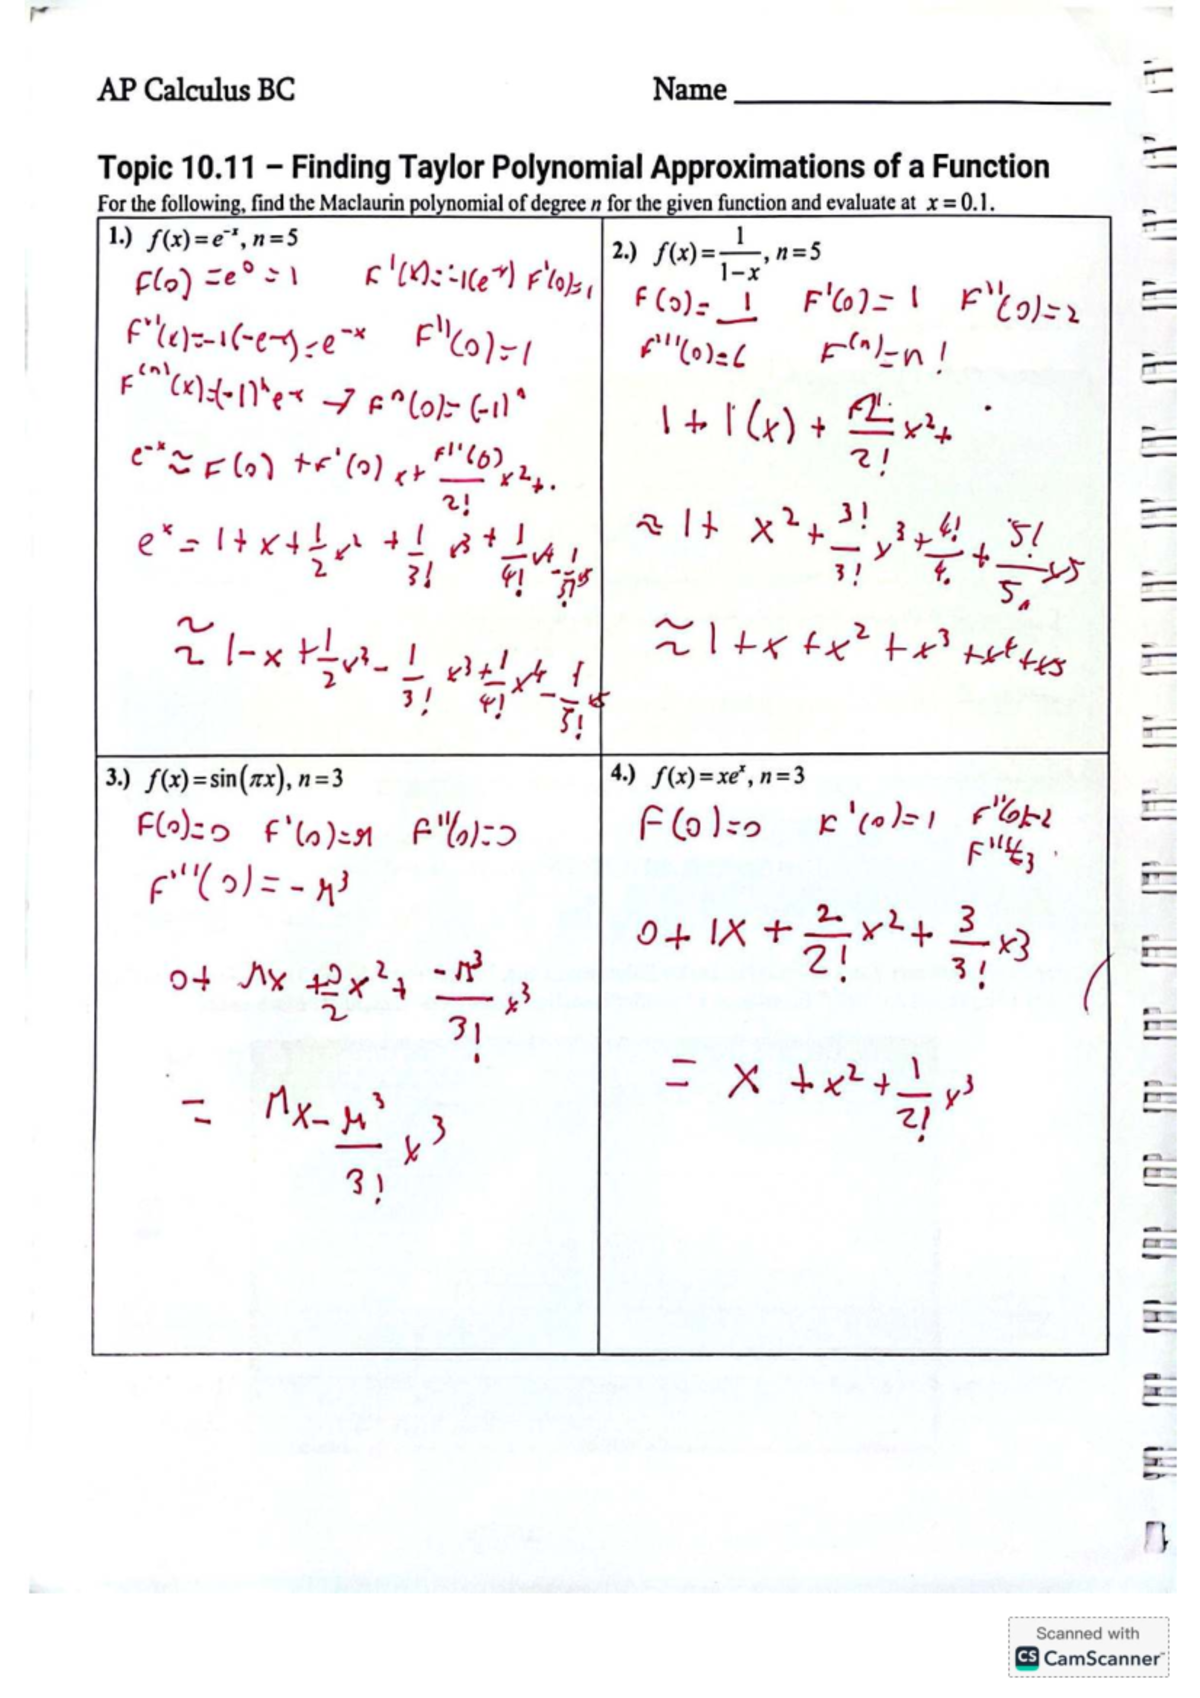 AP Calculus BC Name
Topic 10.11 – Finding Taylor Polynomial Approximations of a Function
For the following, find the Maclaurin polynomial of degree n for the given function and evaluate at x = 0.1.
1.) f(x) = e^-x, n = 5
F(0) = e^0 = 1 F'(x) = -1(e^-x) F'(0)=
F''(x)=-1(-e^-x)=e^-x F''(0)=1
F^(n)(x)=(-1)^n e^-x → F^n(0)= (-1)^n
e^-x ≈ F(0) + F'(0)x + F''(0)/2! x^2 + .
e^x = 1 + x + 1/2 x^2 + 1/3! x^3 + 1/4! x^4 - 1/5! x^5
≈ 1 - x + 1/2 x^3 - 1/3! x^3 + 1/4! x^4 - 1/5! x^5
2.) f(x) = 1/(1-x), n = 5
F(0)= 1 F'(0)= 1 F''(0)=2
F'''(0)=6 F^(n)=n!
1 + 1(x) + 2/2! x^2 +
≈ 1 + x^2 + 3!/3! x^3 + 4!/4. + 5!/5 x^5
≈ 1 + x + x^2 + x^3 + x^4 + x^5
3.) f(x) = sin(πx), n = 3
F(0)=0 F'(0)=π F''(0)=0
F'''(0) = -π^3
0 + πx + 0/2 x^2 + -π^3/3! x^3
= πx - π^3/3! x^3
4.) f(x) = xe^x, n = 3
F(0)=0 F'(0)=1 F''(0)=2
F'''=3
0 + 1x + 2/2! x^2 + 3/3! x^3
= x + x^2 + 1/2! x^3
Scanned with
CS CamScanner